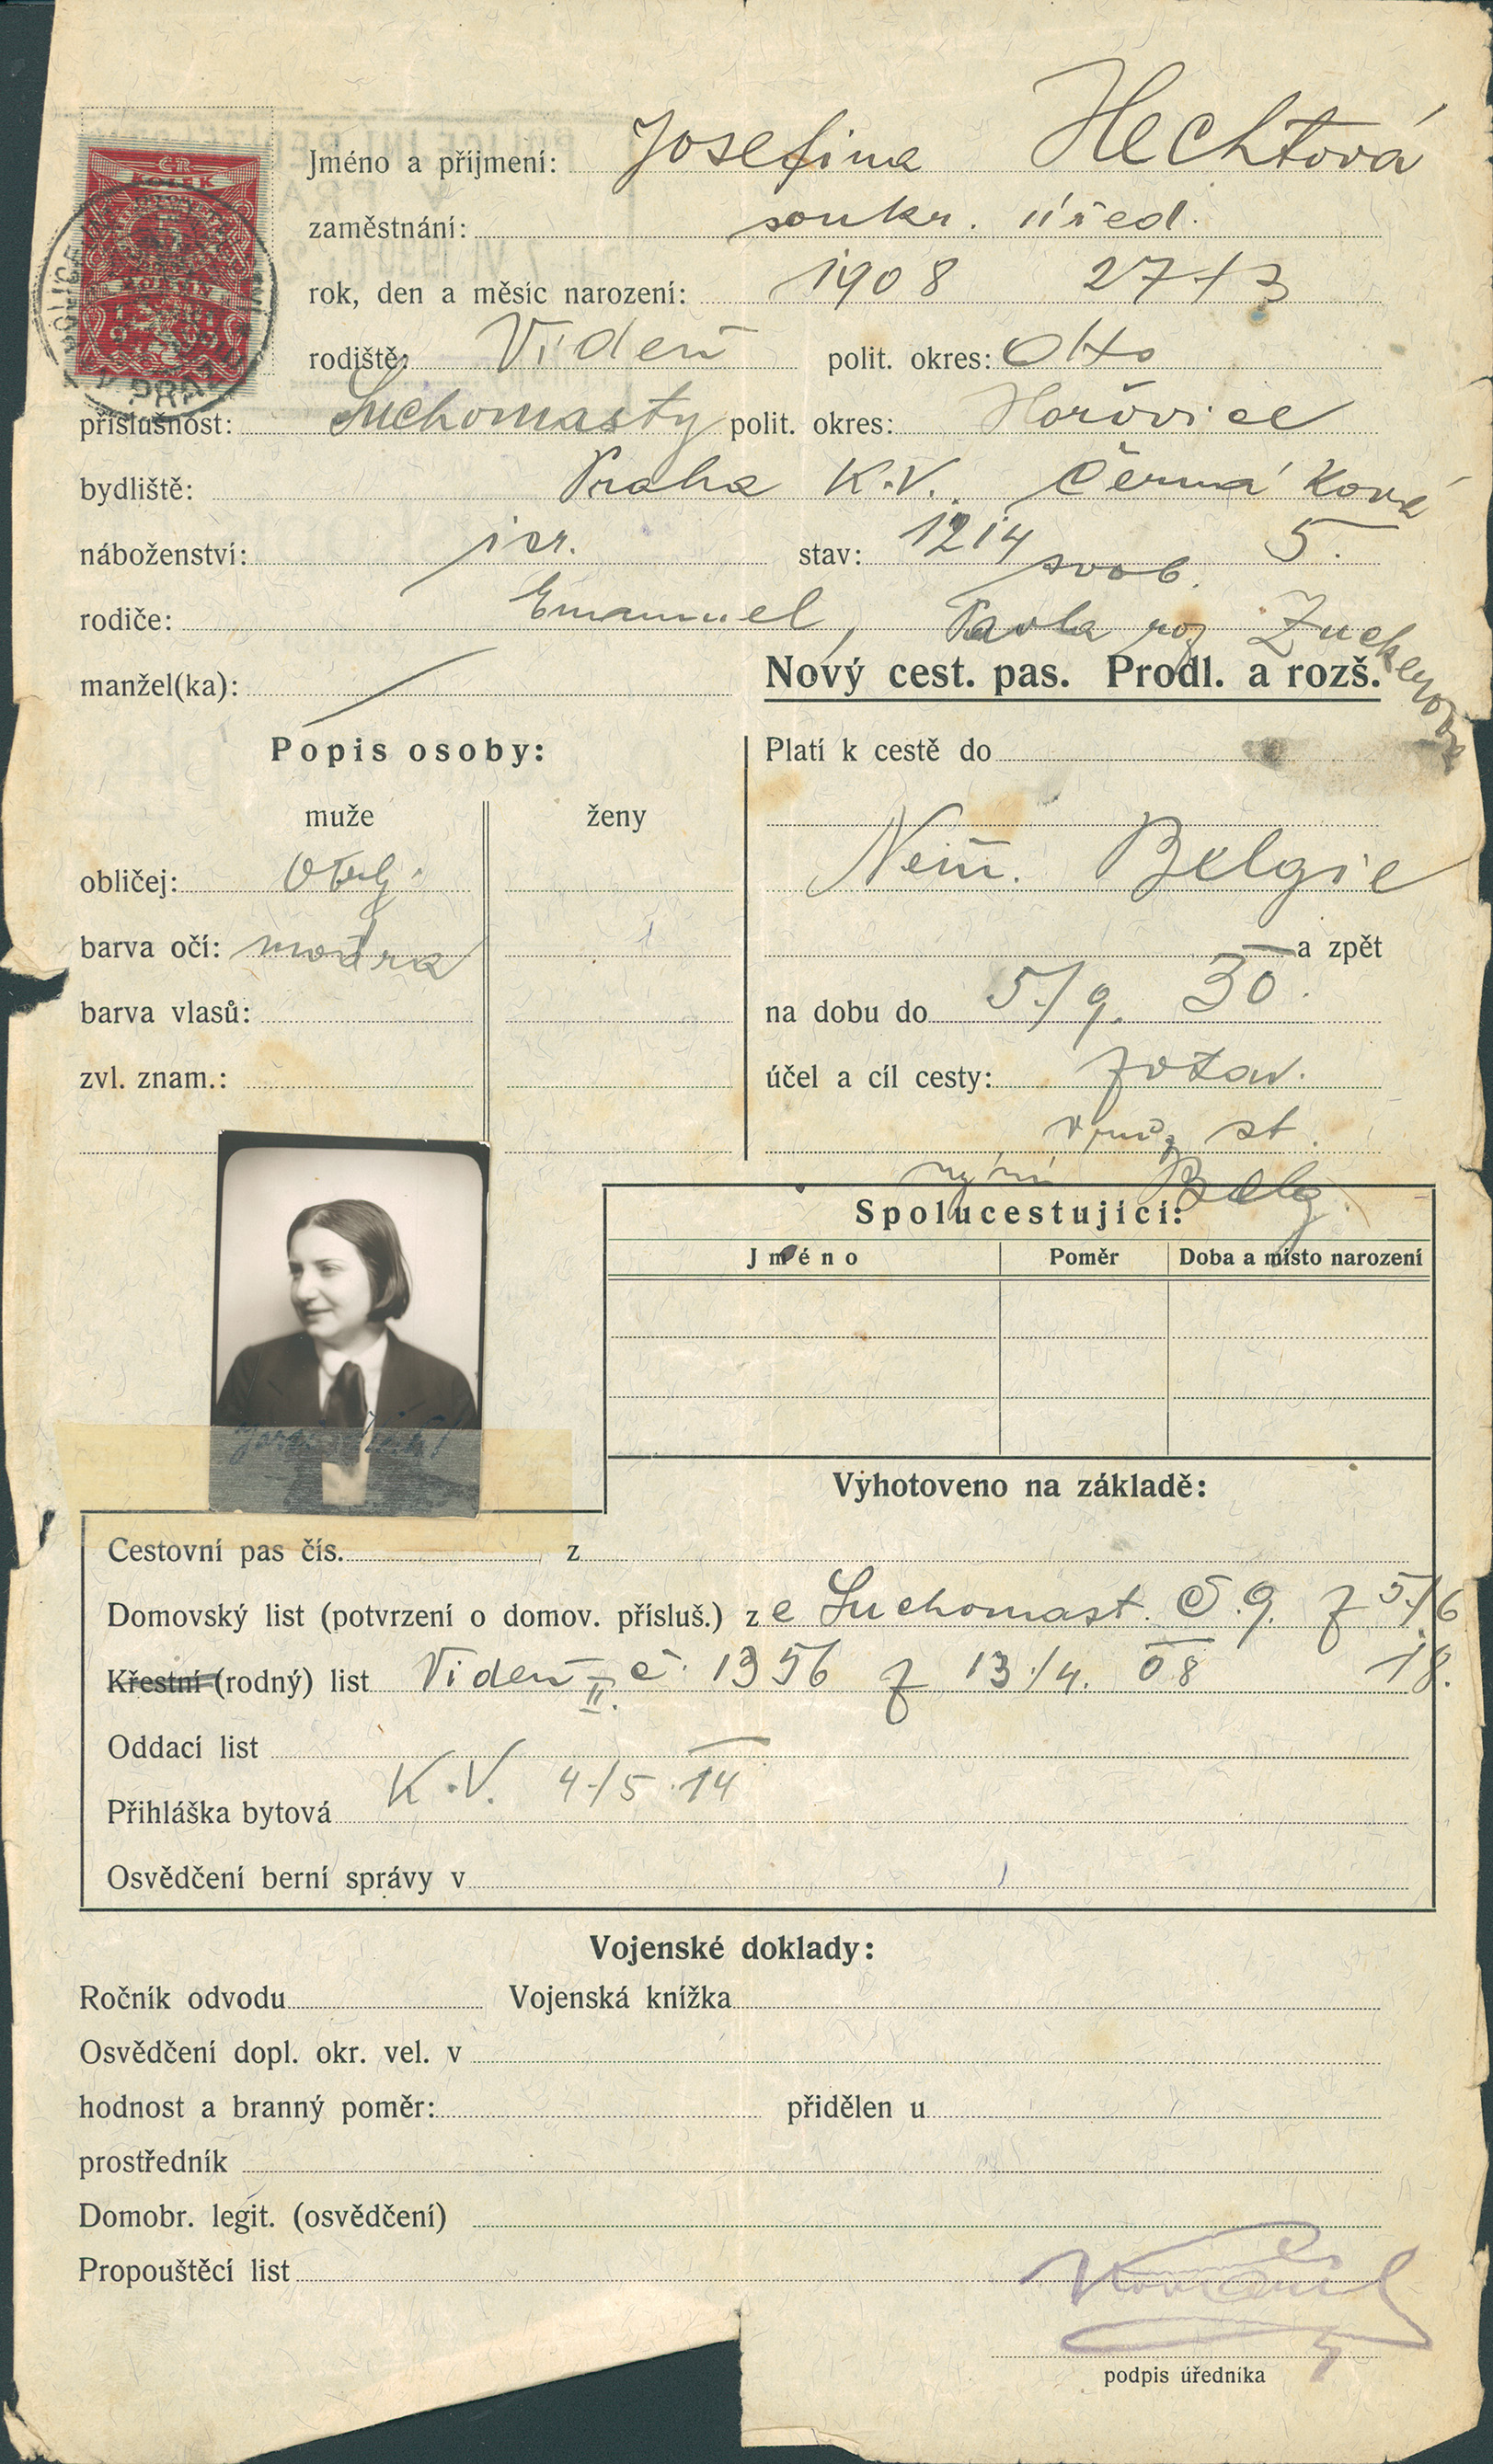 Jméno a příjmení: Josefina Hechtová
zaměstnání: soukr. úřed.
rok, den a měsíc narození: 1908 27/3
rodiště: Vídeň polit. okres: dtto
příslušnost: Suchomasty polit. okres: Hořovice
bydliště: Praha K.V. Černá
1214 5.
náboženství: isr. stav: svob.
rodiče: Emanuel, Pavla roz Zuckerová
manžel(ka):
Nový cest. pas. Prodl. a rozš.
Popis osoby:
muže ženy
obličej:
barva očí: modrá
barva vlasů:
zvl. znam.:
Platí k cestě do
Něm. Belgie
a zpět
na dobu do 5/9. 30.
účel a cíl cesty: zotav.
st.
nyní Belg.
Spolucestující:
Jméno Poměr Doba a místo narození
Vyhotoveno na základě:
Cestovní pas čís. z
Domovský list (potvrzení o domov. přísluš.) z e Suchomast. č. 9. z 5/6
18.
Křestní (rodný) list Vídeň II. č. 1356 z 13/4. 08
Oddací list
Přihláška bytová K.V. 4/5 14
Osvědčení berní správy v
Vojenské doklady:
Ročník odvodu Vojenská knížka
Osvědčení dopl. okr. vel. v
hodnost a branný poměr: přidělen u
prostředník
Domobr. legit. (osvědčení)
Propouštěcí list
podpis úředníka